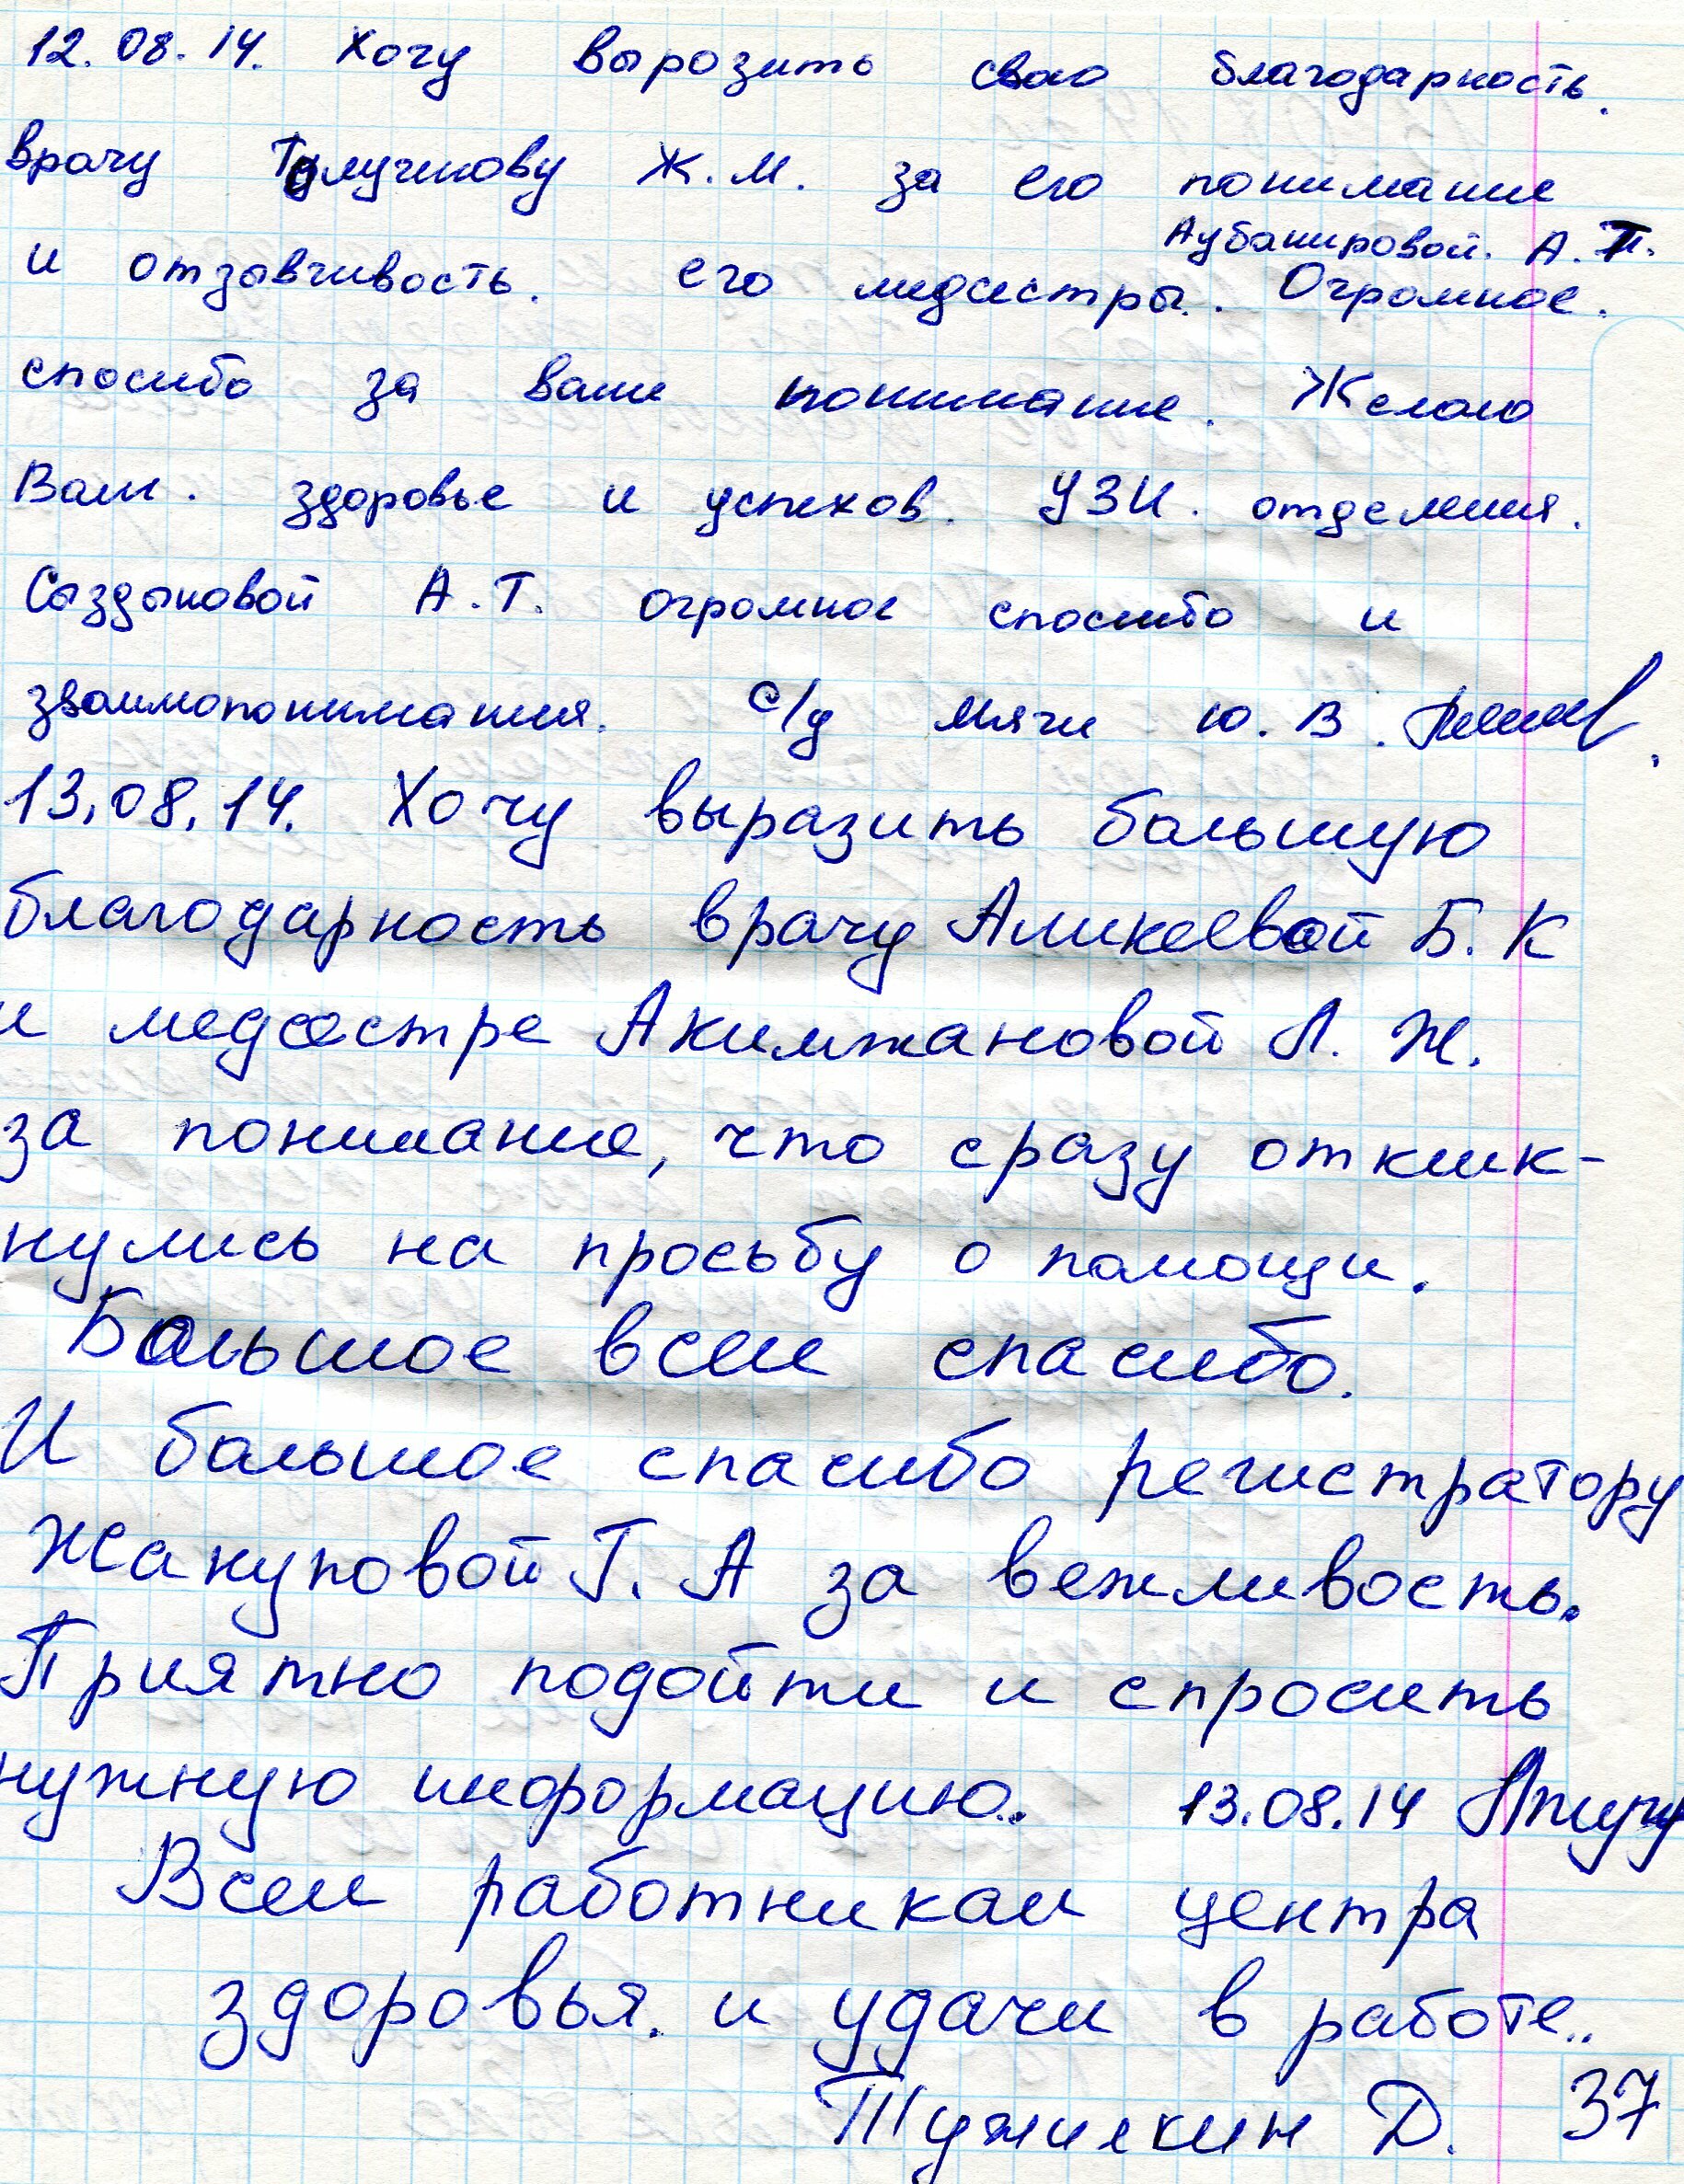 12.08.14. Хочу вырозить свою благодарность.
врачу Толучкову Ж.М. за его понимание
Аубакировой. А.Т.
и отзывчивость. его медсестры. Огромное.
спосибо за ваше понимание. Желою
Вам. здоровье и успехов. УЗИ. отделения.
Сыздыковой А.Т. огромное спосибо и
взаимопонимания. с/у Мячи Ю.В.
13.08.14. Хочу выразить большую
благодарность врачу Аликеевой Б.К
и медсестре Акимжановой Л.Ж.
за понимание, что сразу откик-
нулись на просьбу о помощи.
Большое всем спасибо.
И большое спасибо регистратору
Жакуповой Г.А за вежливость.
Приятно подойти и спросить
нужную информацию. 13.08.14
Всем работникам центра
здоровья. и удачи в работе..
Тужилкин Д. 37